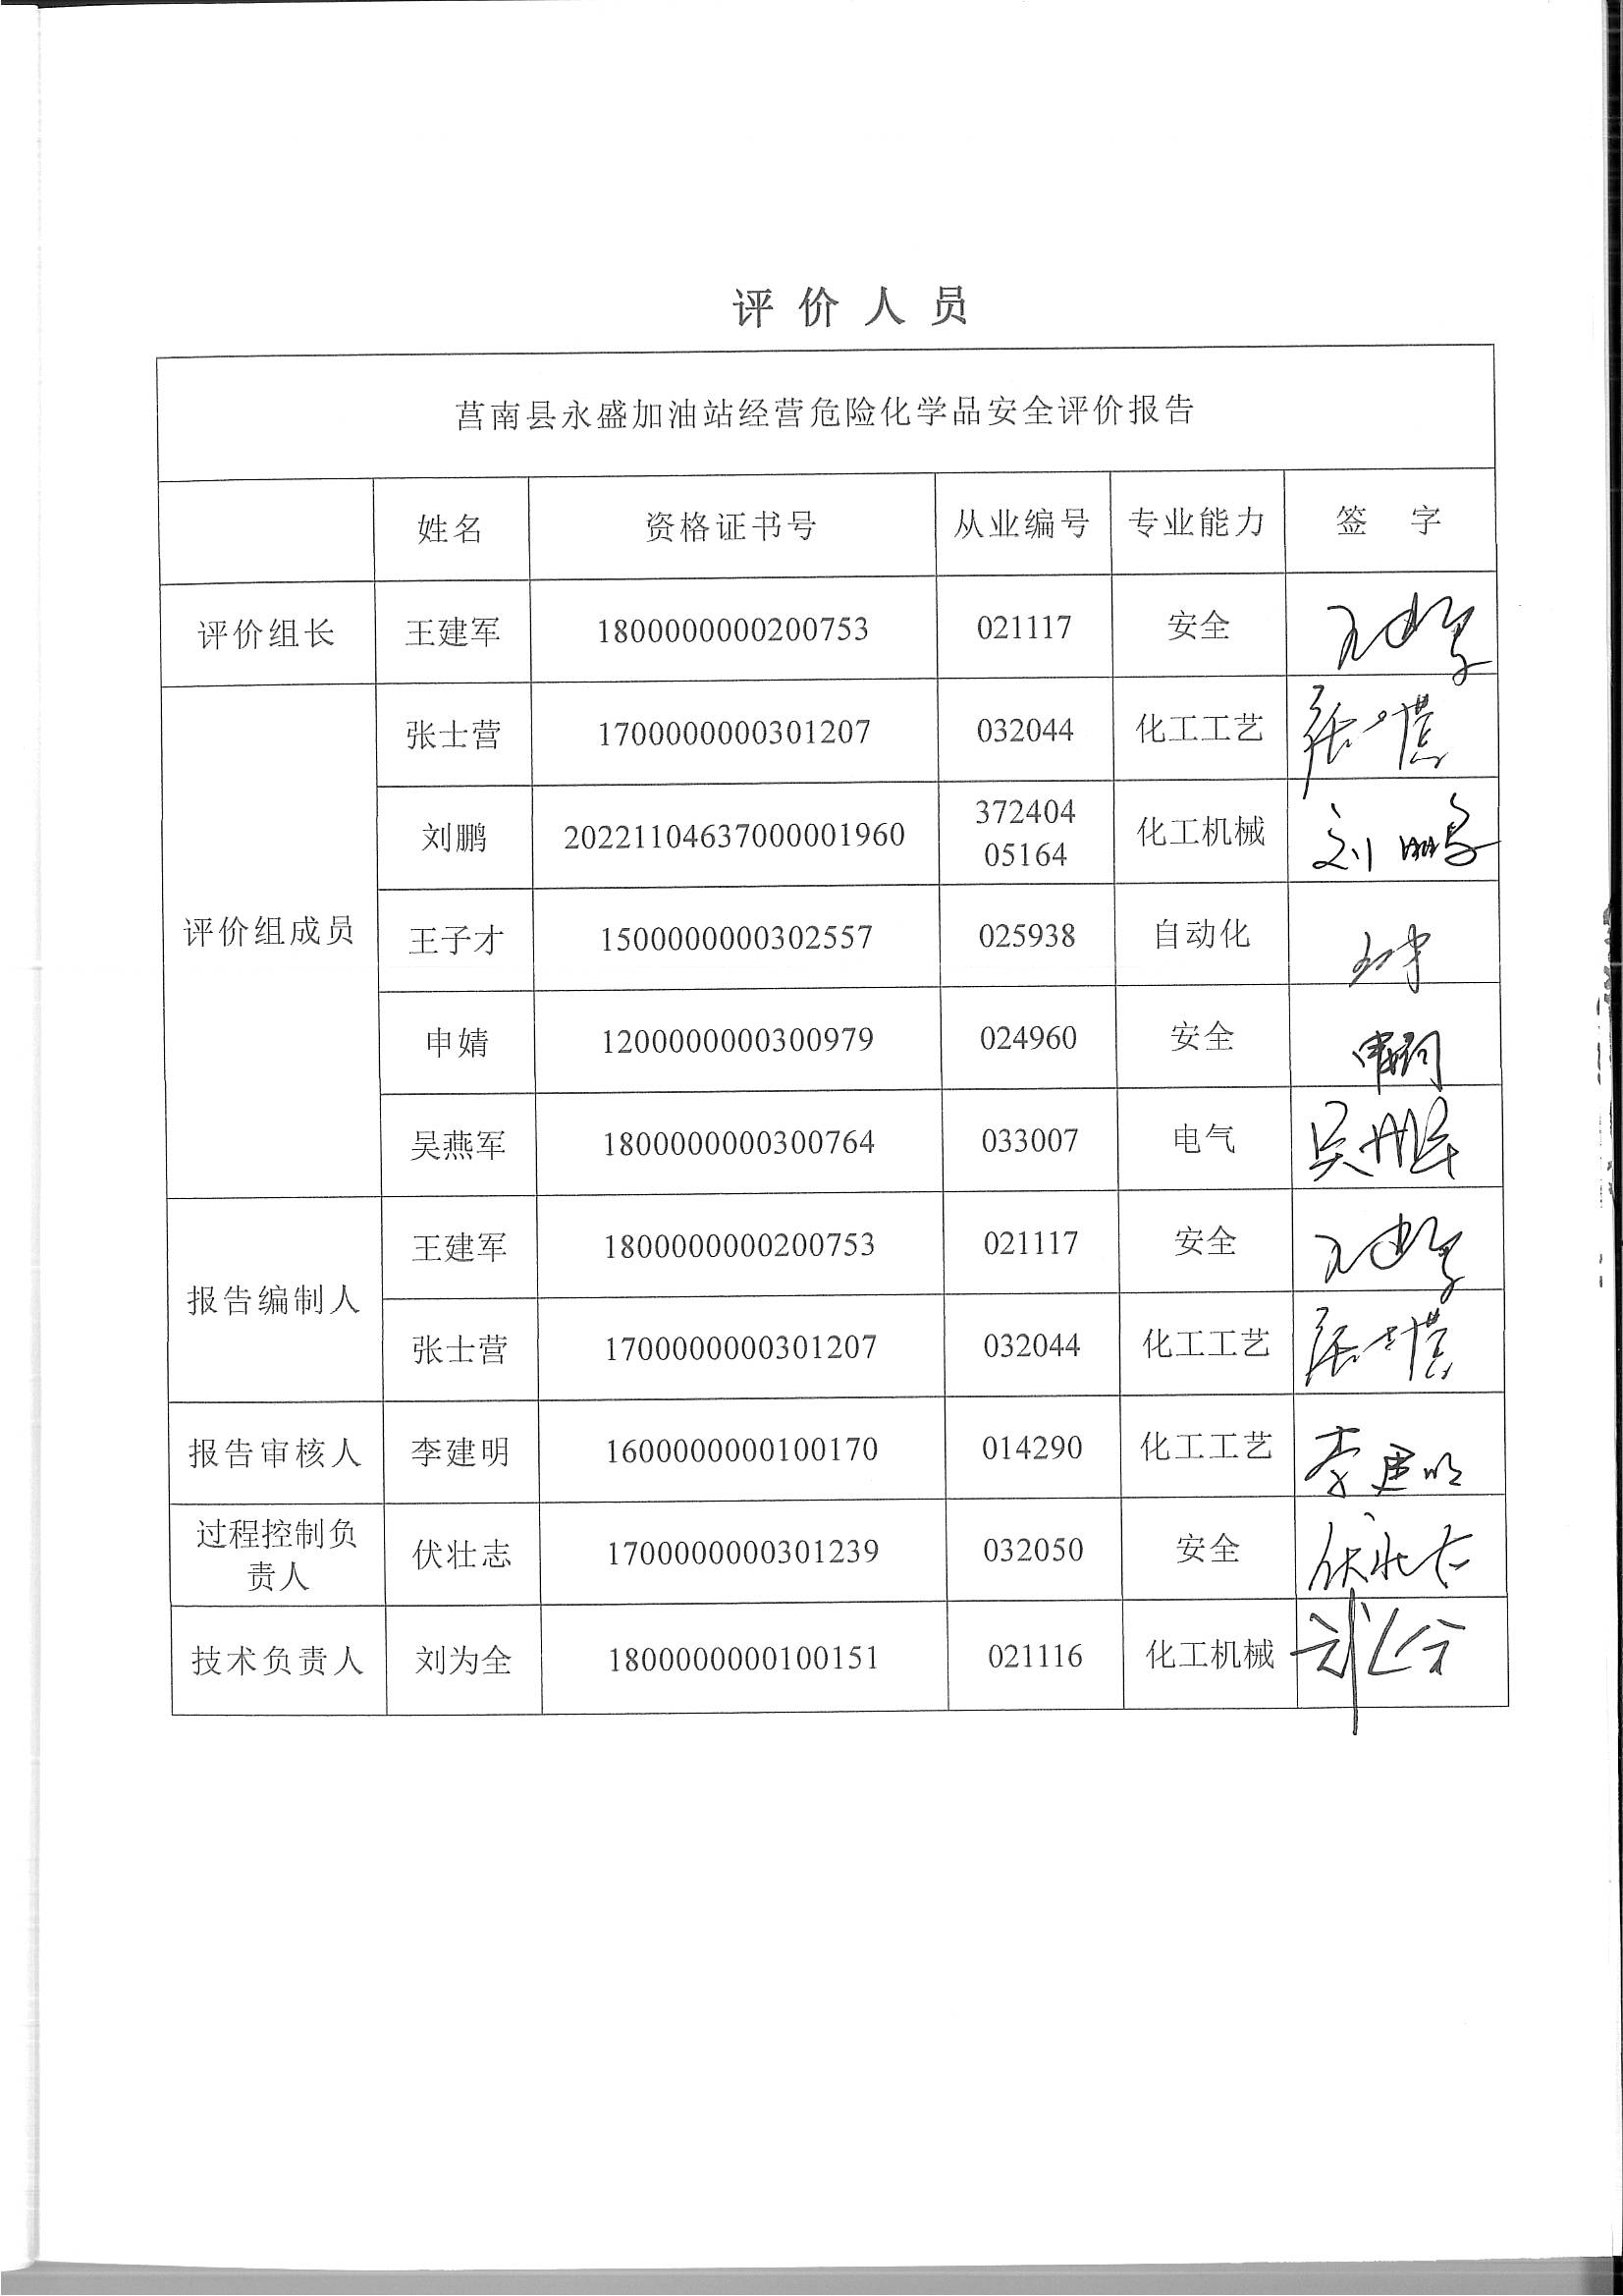 评价人员
莒南县永盛加油站经营危险化学品安全评价报告
姓名 资格证书号 从业编号 专业能力 签 字
评价组长 王建军 1800000000200753 021117 安全 王建军
评价组成员 张士营 1700000000301207 032044 化工工艺 张士营
刘鹏 20221104637000001960 372404
05164 化工机械 刘鹏
王子才 1500000000302557 025938 自动化 王子才
申婧 1200000000300979 024960 安全 申婧
吴燕军 1800000000300764 033007 电气 吴燕军
报告编制人 王建军 1800000000200753 021117 安全 王建军
张士营 1700000000301207 032044 化工工艺 张士营
报告审核人 李建明 1600000000100170 014290 化工工艺 李建明
过程控制负
责人 伏壮志 1700000000301239 032050 安全 伏壮志
技术负责人 刘为全 1800000000100151 021116 化工机械 刘为全